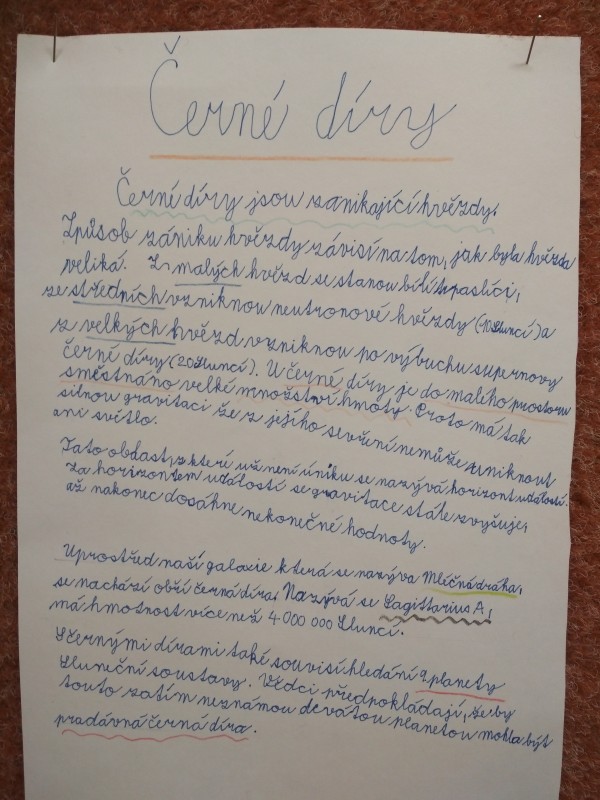 Černé díry
Černé díry jsou zanikající hvězdy.
Způsob zániku hvězdy závisí na tom, jak byla hvězda
veliká. Z malých hvězd se stanou bílí trpaslíci,
ze středních vzniknou neutronové hvězdy (10 Sluncí) a
z velkých hvězd vzniknou po výbuchu supernovy
černé díry (20 Sluncí). U černé díry je do malého prostoru
směstnáno velké množství hmoty. Proto má tak
silnou gravitaci že z jejího sevření nemůže uniknout
ani svítlo.
Tato obdast, z které už není úniku se nazývá horizont událostí.
Za horizontem událostí se gravitace stále zvyšuje,
až nakonec dosáhne nekonečné hodnoty.
Uprostřed naší galaxie která se nazývá Mléčná dráha,
se nachází obří černá díra. Nazývá se Sagittarius A,
má hmotnost více než 4 000 000 Sluncí.
S černými dírami také souvisí hledání 9. planety
Sluneční soustavy. Vědci předpokládají, že by
touto zatím neznámou devátou planetou mohla být
pradávná černá díra.